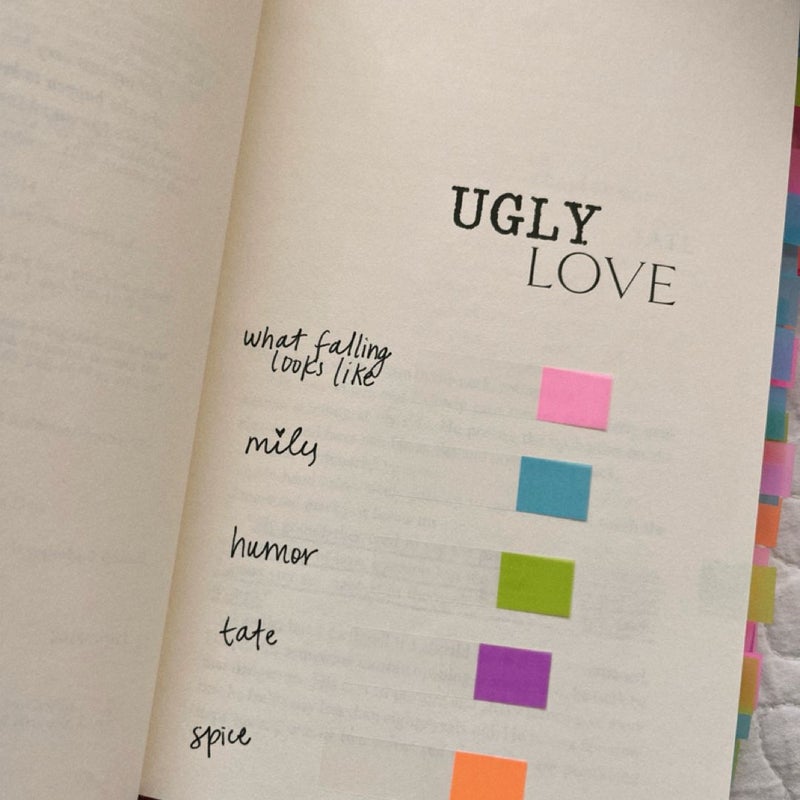 UGLY
LOVE
what falling
looks like
miles
humor
tate
spice